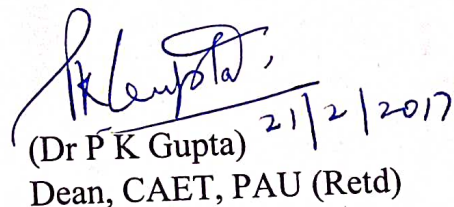 PK Gupta,
21/2/2017
(Dr P K Gupta)
Dean, CAET, PAU (Retd)